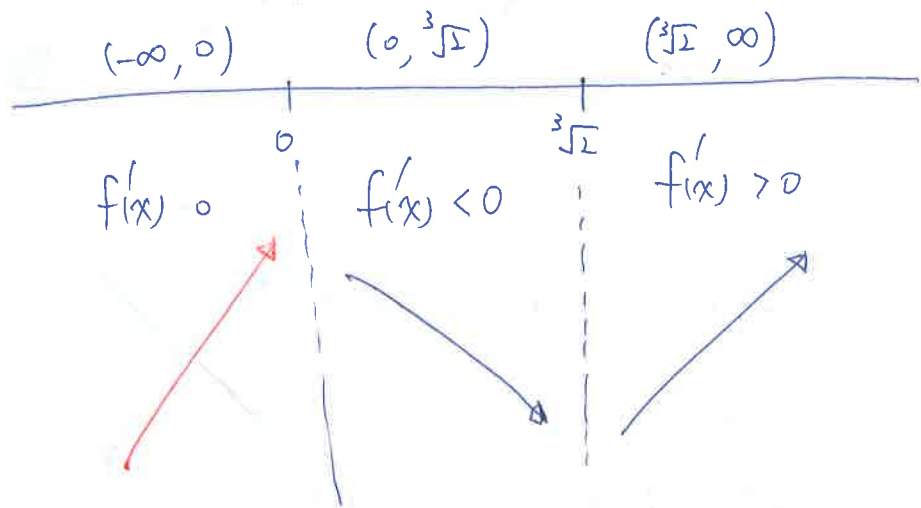 (-∞, 0) (0, ³√2) (³√2, ∞)
0 ³√2
f'(x) 0 f'(x) < 0 f'(x) > 0